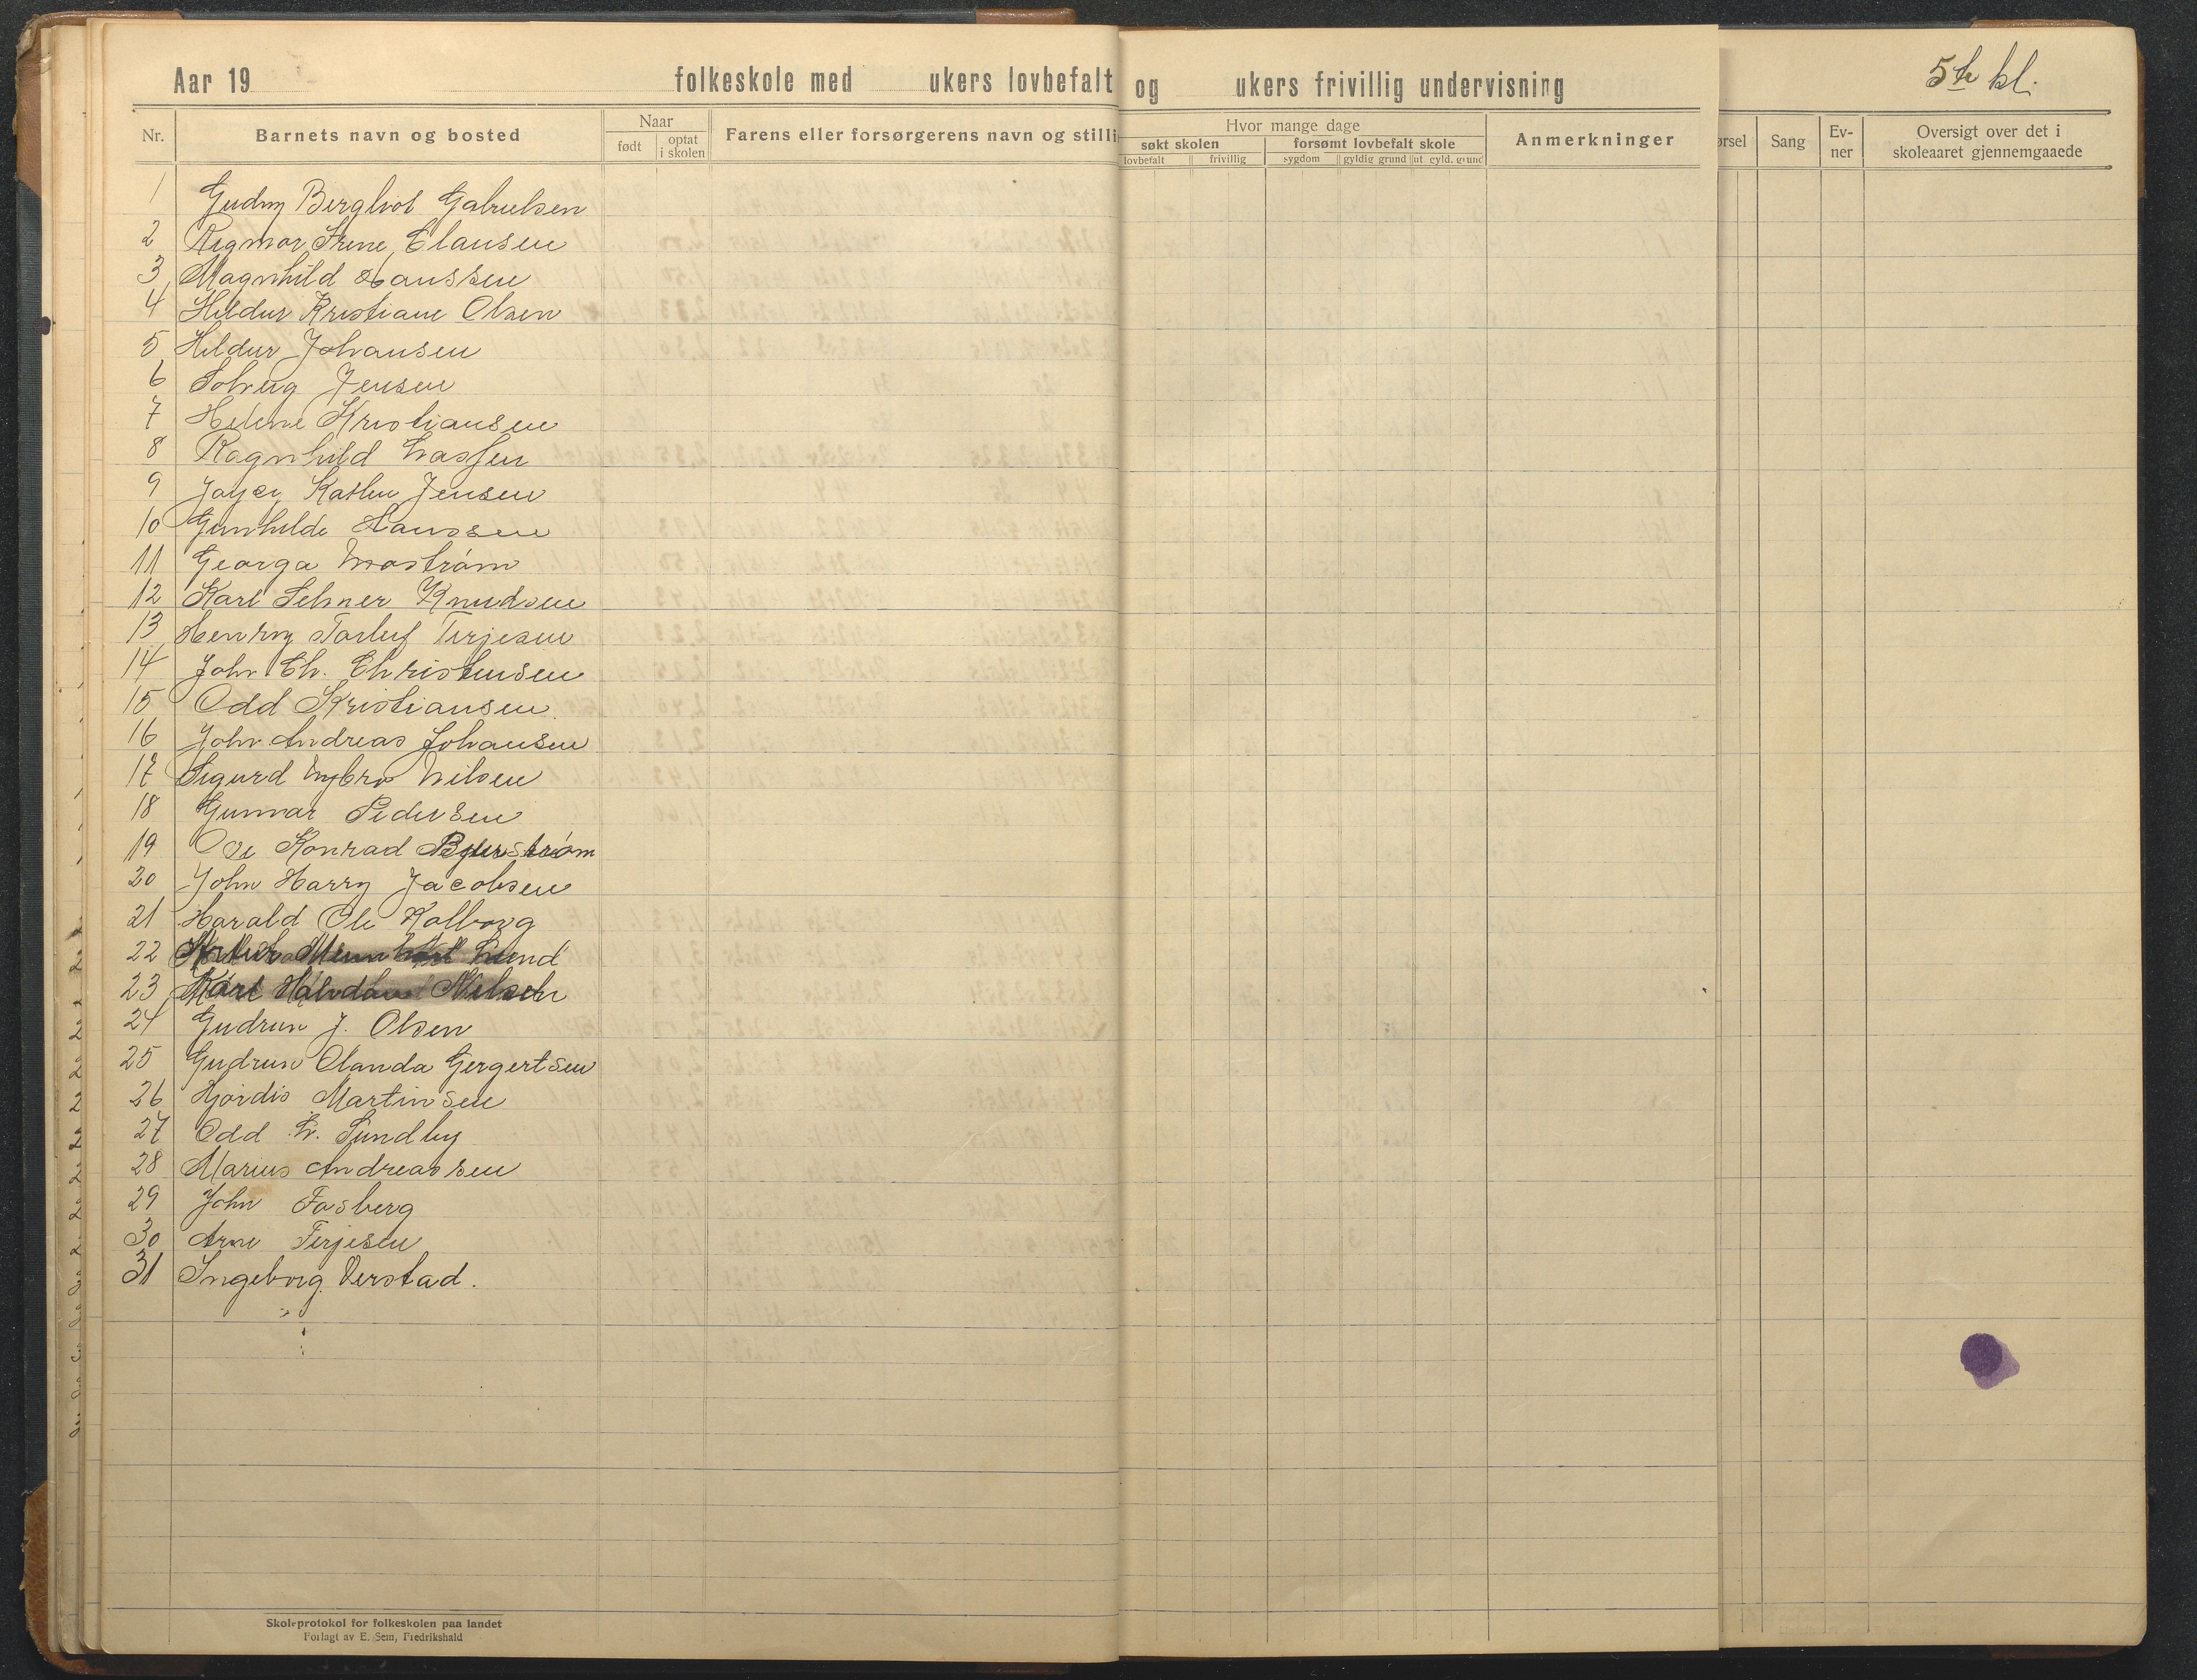 Aar 19 folkeskole med ukers lovbefalt og ukers frivillig undervisning
5te kl.
Nr.
Barnets navn og bosted
Naar
født
optat i skolen
Farens eller forsørgerens navn og stilli
Hvor mange dage
søkt skolen
forsømt lovbefalt skole
lovbefalt
frivillig
sygdom
gyldig grund
ut. gyld. grund
Anmerkninger
ørsel
Sang
Ev-
ner
Oversigt over det i
skoleaaret gjennemgaaede
1 Gudny Bergliot Gabrielsen
2 Ragmor Irene Clausen
3 Magnhild Hanssen
4 Hildur Kristiane Olsen
5 Hildur Johansen
6 Solveig Jensen
7 Helene Kristiansen
8 Ragnhild Lassen
9 Katlen Jensen
10 Gunhilde Hanssen
11 Georga
12 Karl Selmer Knudsen
13 Henry Torleif Terjesen
14 John Chr. Christensen
15 Odd Kristiansen
16 John Andreas Johansen
17 Sigurd Nybro Nilsen
18 Gunnar Pedersen
19 Ove Konrad Bjurstrøm
20 John Harry Jacobsen
21 Harald Ole Kolborg
22 Lund
23 Kåre Halvdan Nilsen
24 Gudrun J. Olsen
25 Gudrun Olanda Gergertsen
26 Hjørdis Martinsen
27 Odd L. Sundby
28 Marius Andreassen
29 John Fosberg
30 Arne Terjesen
31 Ingeborg Verstad.
Skoleprotokol for folkeskolen paa landet
Forlagt av E. Sem, Fredrikshald